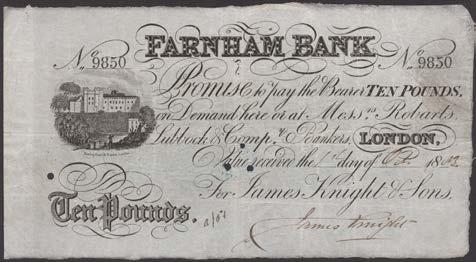 FARNHAM BANK
No 9850 No 9850
I Promise to pay the Bearer TEN POUNDS.
on Demand here or at Messrs. Robarts
Lubbock & Compy. Bankers, LONDON,
Value received the 1 day of 18
For James Knight & Sons.
Ten Pounds.
James Knight